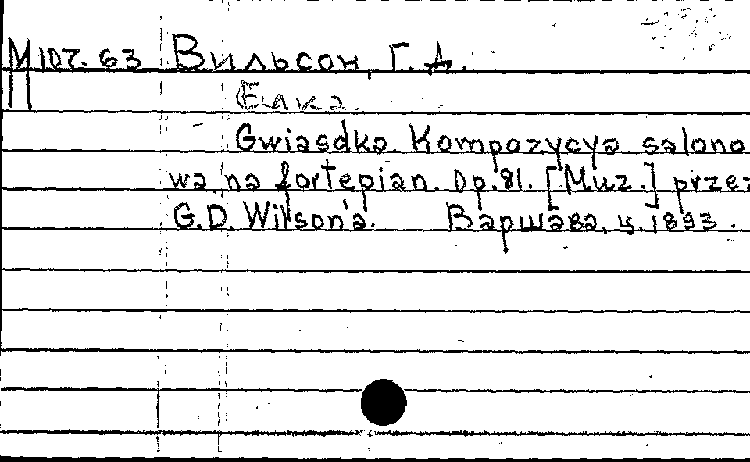 М 107.63 Вильсон, Г. Д.
Елка
Gwiasdka. Kompozycya salono
wa na fortepian. Op. 81. [Muz.] przez
G. D. Wilson'a. Варшава, ц. 1893.